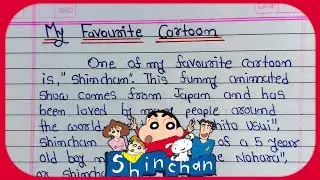 My Favourite Cartoon
One of my favourite cartoon
is, "Shinchan". This funny animated
show comes from Japan and has
been loved by many people around
the world
Usui",
Shinchan
of a 5 year
old boy
Nohara",
or Shinch
Shinchan